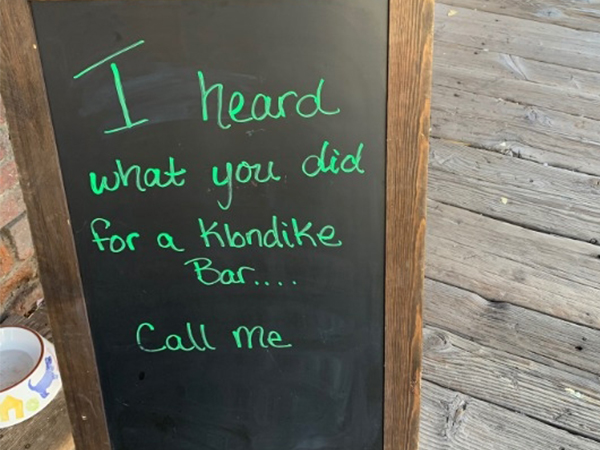 I heard
what you did
for a Klondike
Bar....
Call me